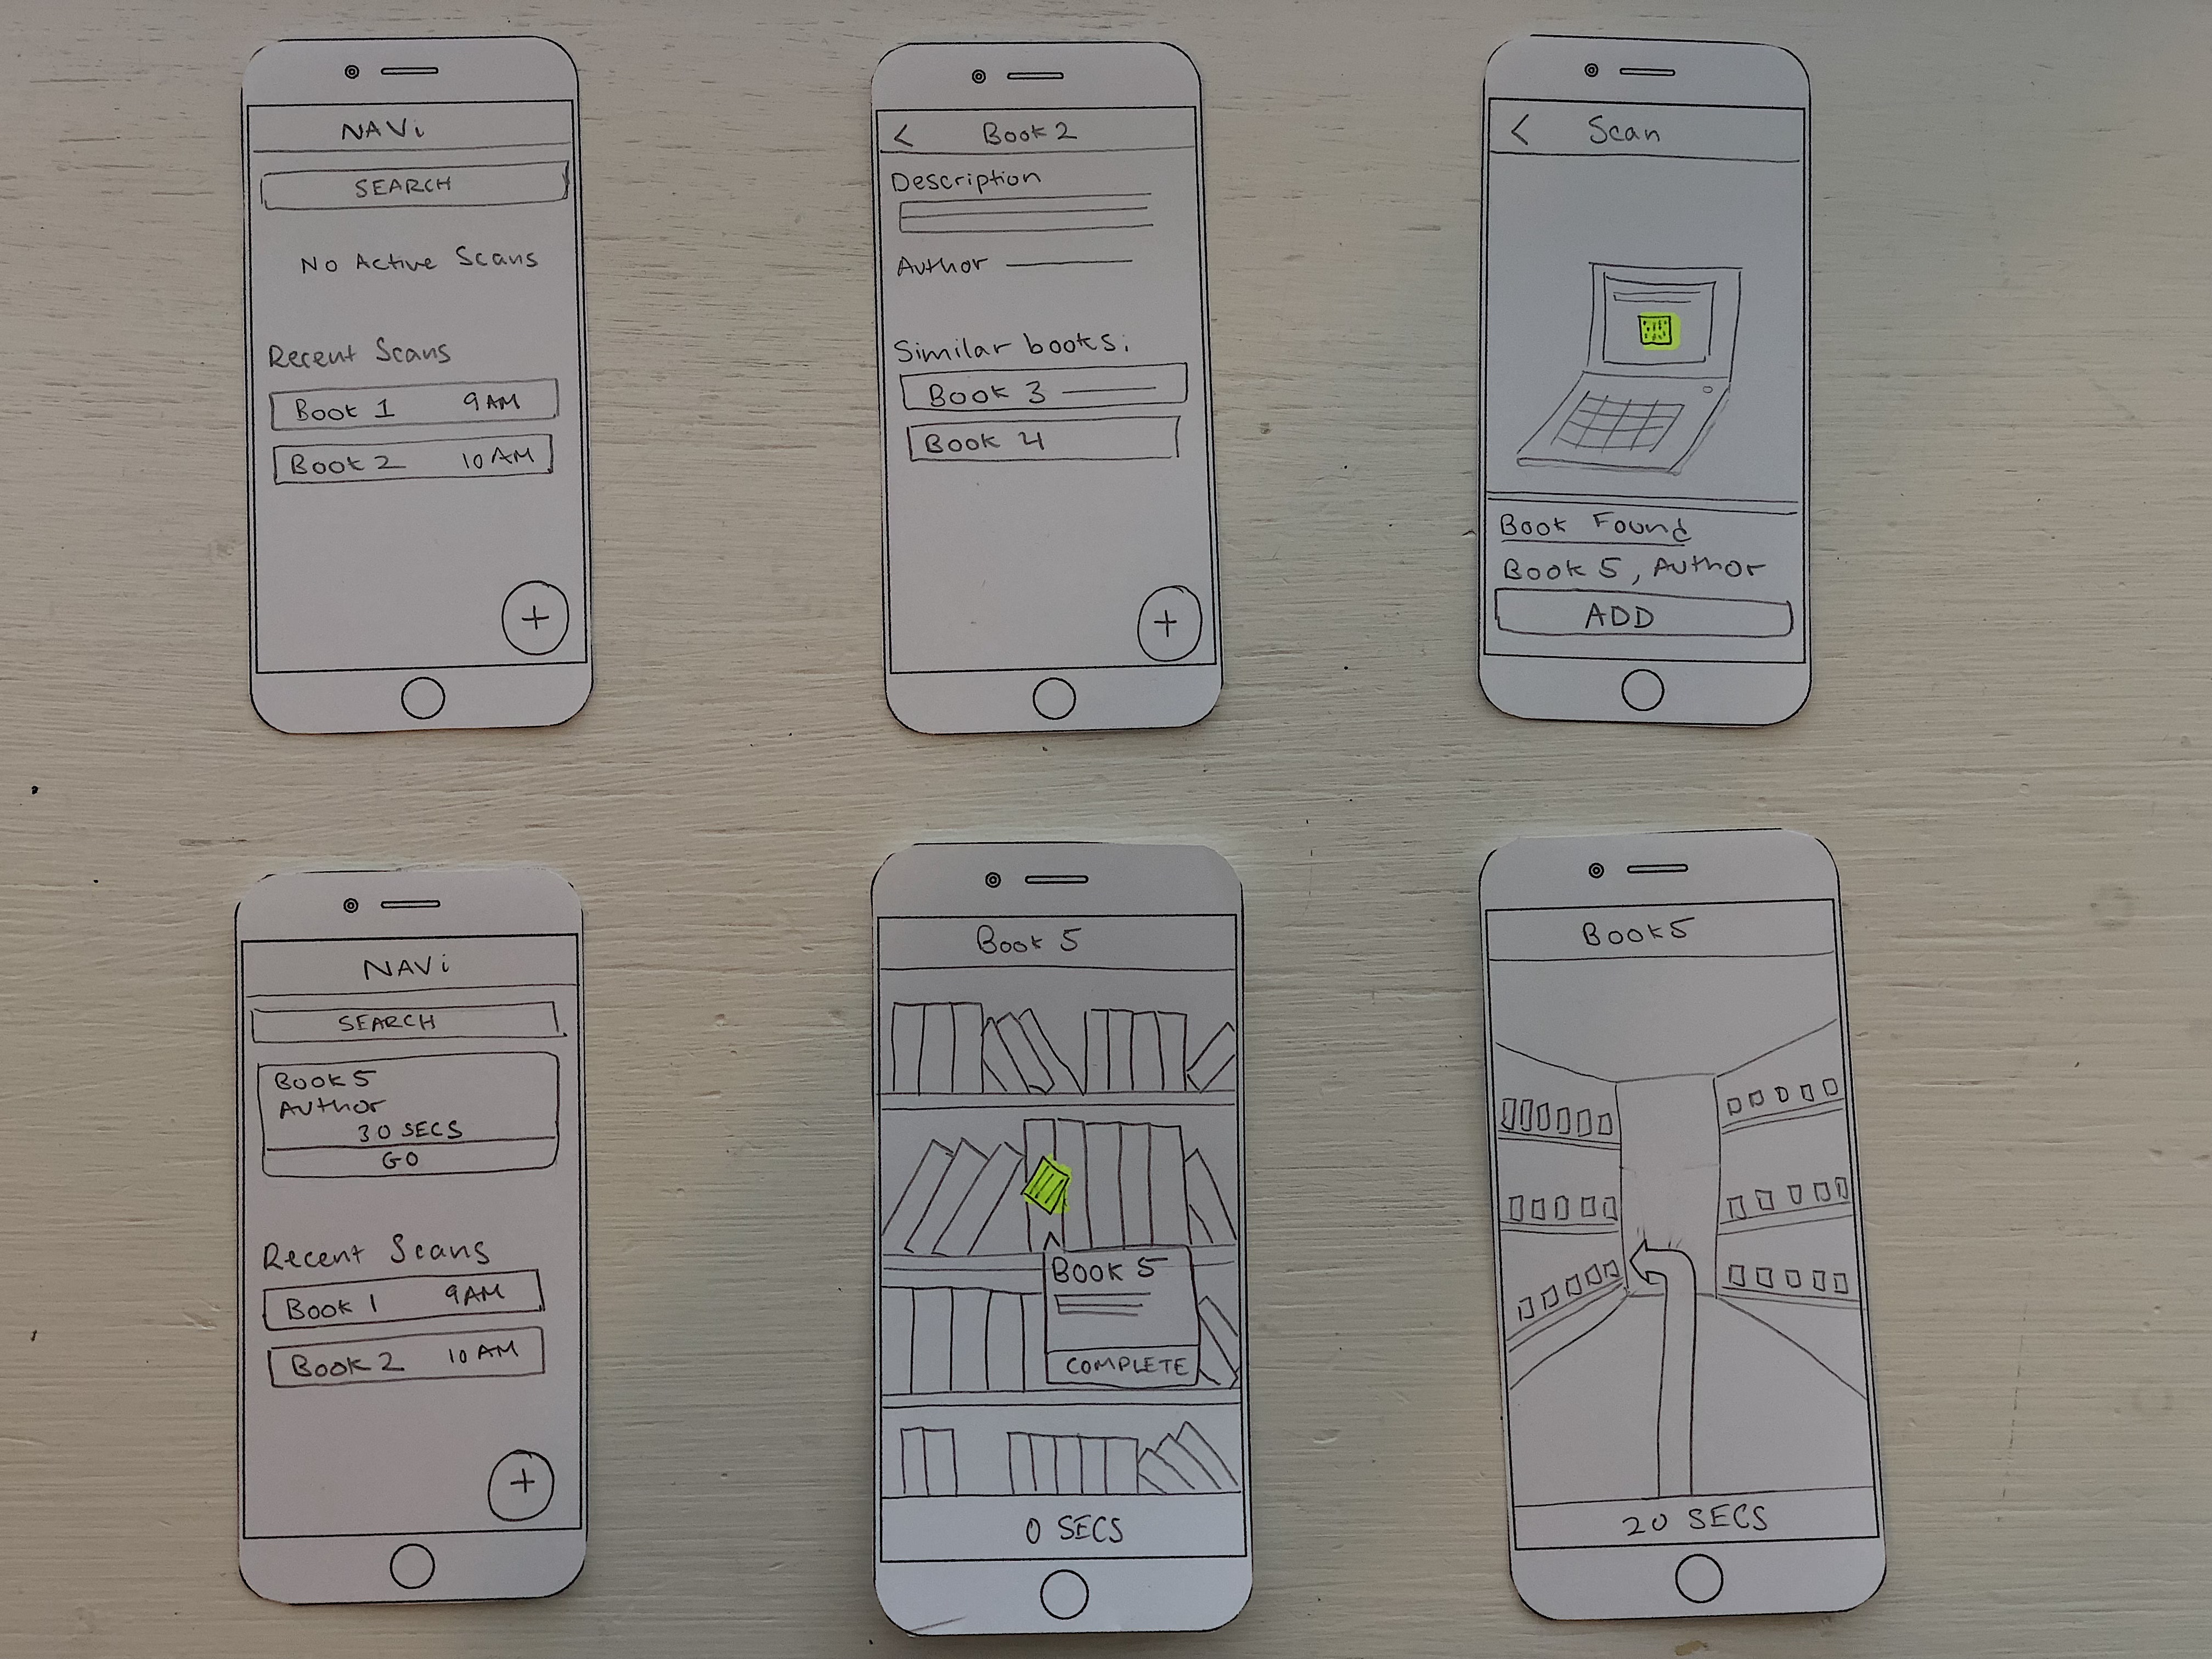 NAVi
SEARCH
No Active Scans
Recent Scans
Book 1 9AM
Book 2 10AM
+
< Book 2
Description
Author
Similar books:
Book 3
Book 4
+
< Scan
Book Found
Book 5, Author
ADD
NAVi
SEARCH
Book 5
Author
30 SECS
GO
Recent Scans
Book 1 9AM
Book 2 10AM
+
Book 5
Book 5
COMPLETE
0 SECS
Book 5
20 SECS